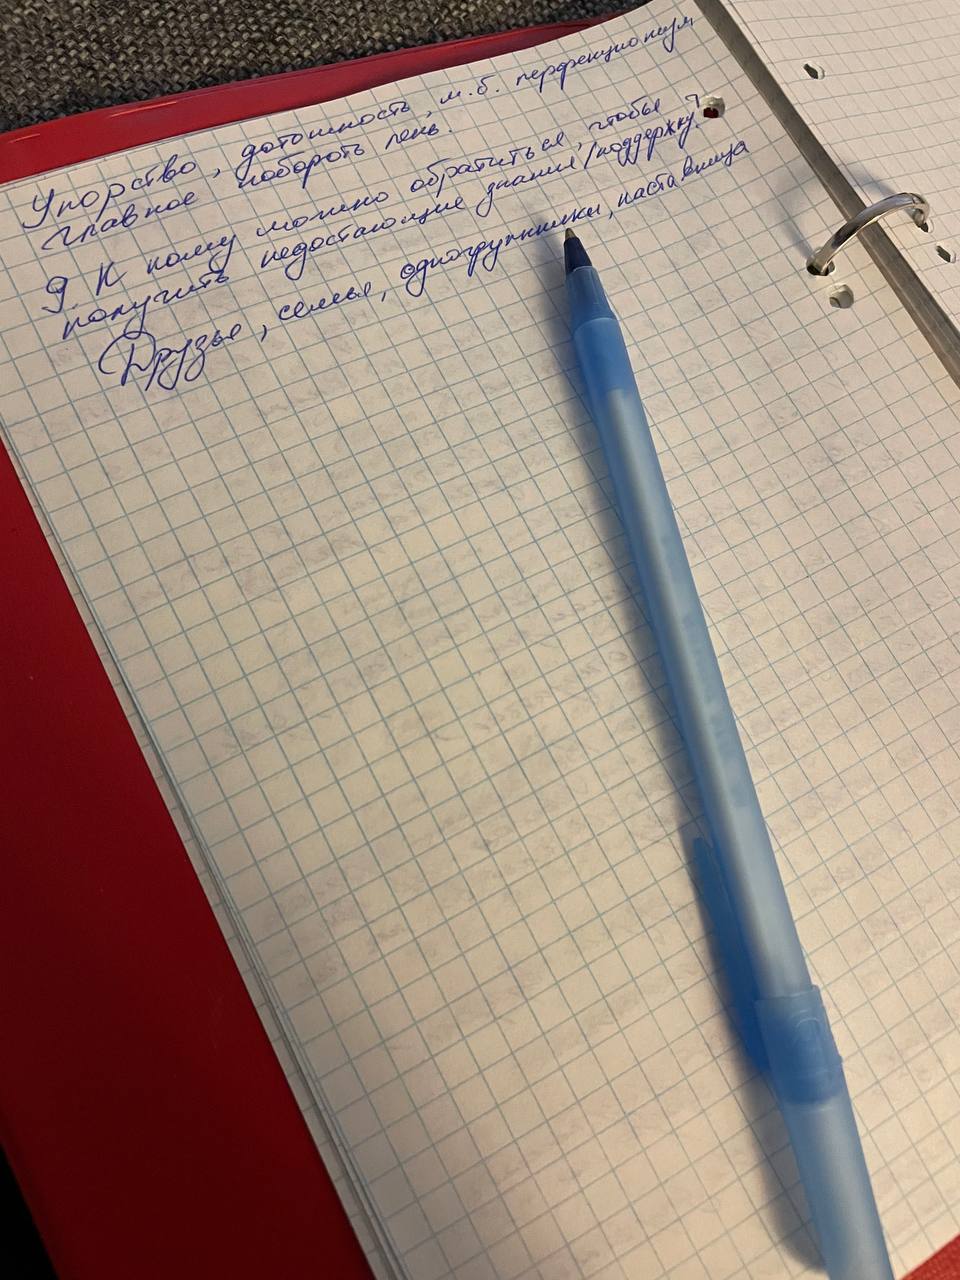 Упорство, дотошность, м.б. перфекционизм,
главное побороть лень.
9. К кому можно обратиться, чтобы
получить недостающие знания/поддержку?
Друзья, семья, одногруппники, наставница